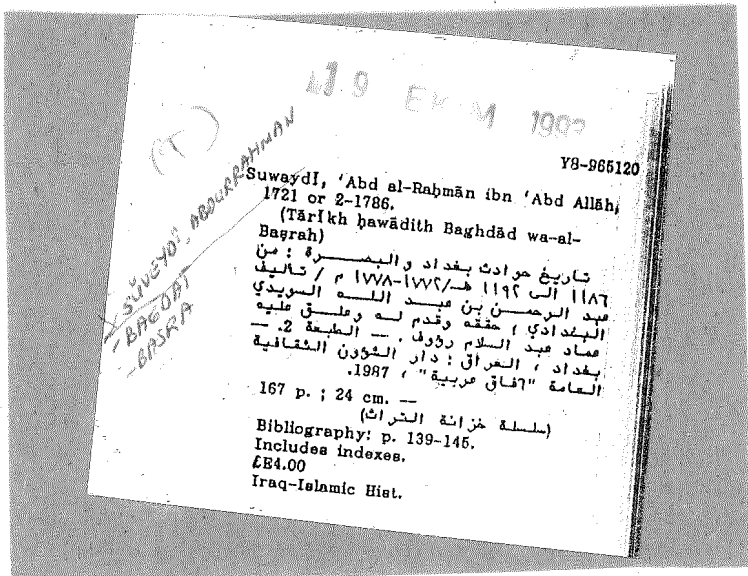 19 EKİM 1992
(T)
SÜVEYDÎ, ABDURRAHMAN
-BAGDAT
-BASRA
Y8-965120
Suwaydī, ʻAbd al-Raḥmān ibn ʻAbd Allāh,
1721 or 2-1786.
(Tārīkh ḥawādith Baghdād wa-al-
Baṣrah)
تاريخ حوادث بغداد والبصرة : من
١١٨٦ الى ١١٩٢ هـ/١٧٧٢-١٧٧٨ م / تأليف
عبد الرحمن بن عبد اللـه السويدي
البغدادي ؛ حققه وقدم لـه وعلـق عليه
عماد عبد السلام رؤوف. -- الطبعة 2. --
بغداد ، العراق : دار الشؤون الثقافية
العامة "آفاق عربية" ، 1987.
167 p. ; 24 cm. --
(سلسلة خزانة التراث)
Bibliography: p. 139-145.
Includes indexes.
£E4.00
Iraq-Islamic Hist.